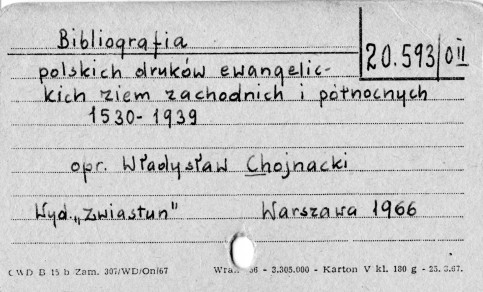 Bibliografia
20.593/OII
polskich druków ewangelic-
kich ziem zachodnich i północnych
1530-1939
opr. Władysław Chojnacki
Wyd. „Zwiastun" Warszawa 1966
CWD B 15 b Zam. 307/WD/Oni67 66 - 3.305.000 - Karton V kl. 180 g - 25.3.67.